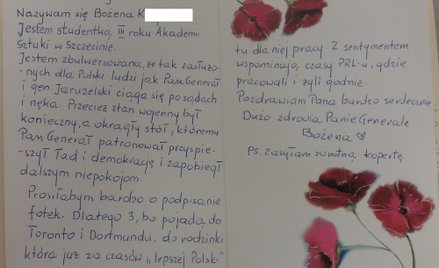 Nazywam się Bożena K
Jestem studentką III roku Akademi
Sztuki w Szczecinie.
Jestem zbulwersowana, że tak zasłużo-
-nych dla Polski ludzi jak Pan Generał
i gen Jaruzelski ciąga się po sądach
i nęka. Przecież stan wojenny był
konieczny, a okrągły stół, któremu
Pan Generał patronował przyspie-
-szył ład i demokrację i zapobiegł
dalszym niepokojom.
Prosiłabym bardzo o podpisanie
fotek. Dlatego 3, bo pojadą do
Toronto i Dortmundu, do rodzinki
która już za czasów „lepszej Polski"
tu dla niej pracy z sentymentem
wspominają czasy PRL-u, gdzie
pracowali i żyli godnie.
Pozdrawiam Pana bardzo serdecznie.
Dużo zdrowia Panie Generale
Bożena
Ps. Załączam zwrotną kopertę